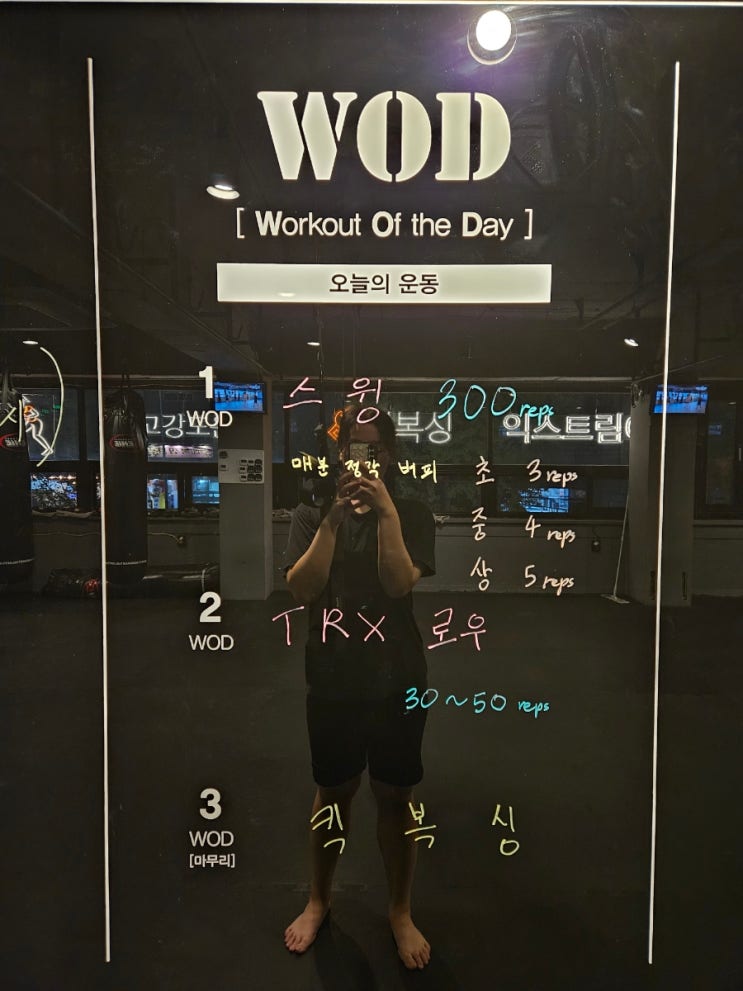 WOD
[ Workout Of the Day ]
오늘의 운동
1
WOD
스윙 300 reps
고강도
복싱
익스트림
매분 정각 버피 초 3 reps
중 4 reps
상 5 reps
2
WOD
TRX 로우
30~50 reps
3
WOD
[마무리]
킥복싱